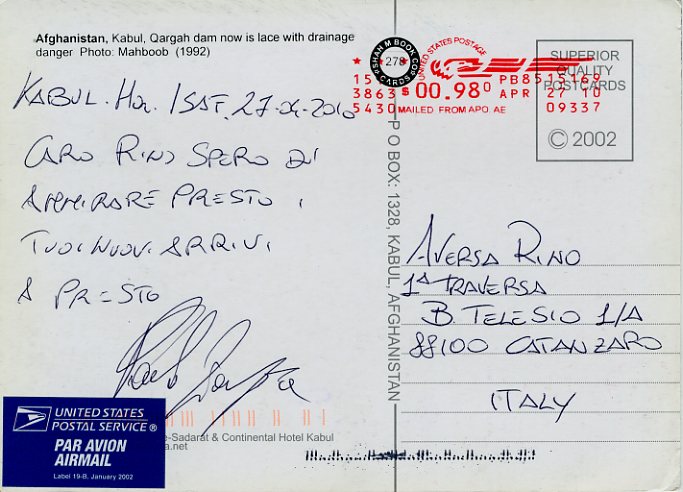 Afghanistan, Kabul, Qargah dam now is lace with drainage
danger Photo: Mahboob (1992)
KABUL. 27.04.2010
CARO RINO SPERO DI
AMMIRARE PRESTO I
TUOI NUOVI ARRIVI
A PRESTO
SHAH M BOOK CO
278
CARDS
UNITED STATES POSTAGE
PB8515169
3863 $ 00.98⁰ APR 27 10
5430 MAILED FROM APO AE 09337
SUPERIOR
QUALITY
POSTCARDS
© 2002
P O BOX: 1328, KABUL, AFGHANISTAN
AVERSA RINO
1ª TRAVERSA
B. TELESIO 1/A
88100 CATANZARO
ITALY
UNITED STATES
POSTAL SERVICE ®
PAR AVION
AIRMAIL
Label 19-B, January 2002
e-Sadarat & Continental Hotel Kabul
a.net